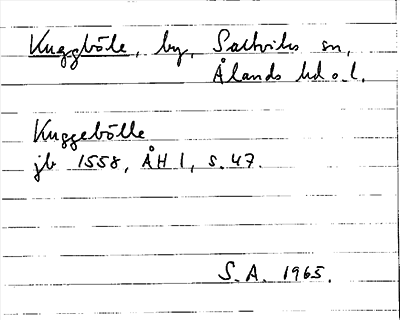 Kuggböle, by, Saltviks sn,
Ålands hd o. l.
Kuggebölle
jb 1558, ÅH 1, s. 47.
S. A. 1965.